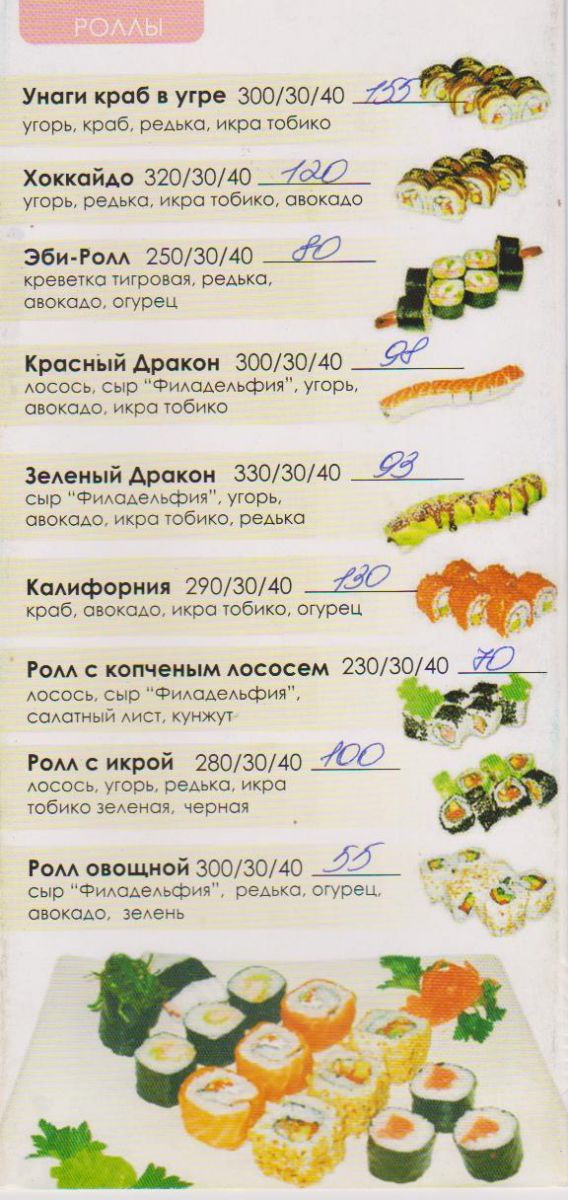 РОЛЛЫ
Унаги краб в угре 300/30/40 155
угорь, краб, редька, икра тобико
Хоккайдо 320/30/40 120
угорь, редька, икра тобико, авокадо
Эби-Ролл 250/30/40 80
креветка тигровая, редька,
авокадо, огурец
Красный Дракон 300/30/40 98
лосось, сыр “Филадельфия”, угорь,
авокадо, икра тобико
Зеленый Дракон 330/30/40 93
сыр “Филадельфия”, угорь,
авокадо, икра тобико, редька
Калифорния 290/30/40 130
краб, авокадо, икра тобико, огурец
Ролл с копченым лососем 230/30/40 70
лосось, сыр “Филадельфия”,
салатный лист, кунжут
Ролл с икрой 280/30/40 100
лосось, угорь, редька, икра
тобико зеленая, черная
Ролл овощной 300/30/40 55
сыр “Филадельфия”, редька, огурец,
авокадо, зелень